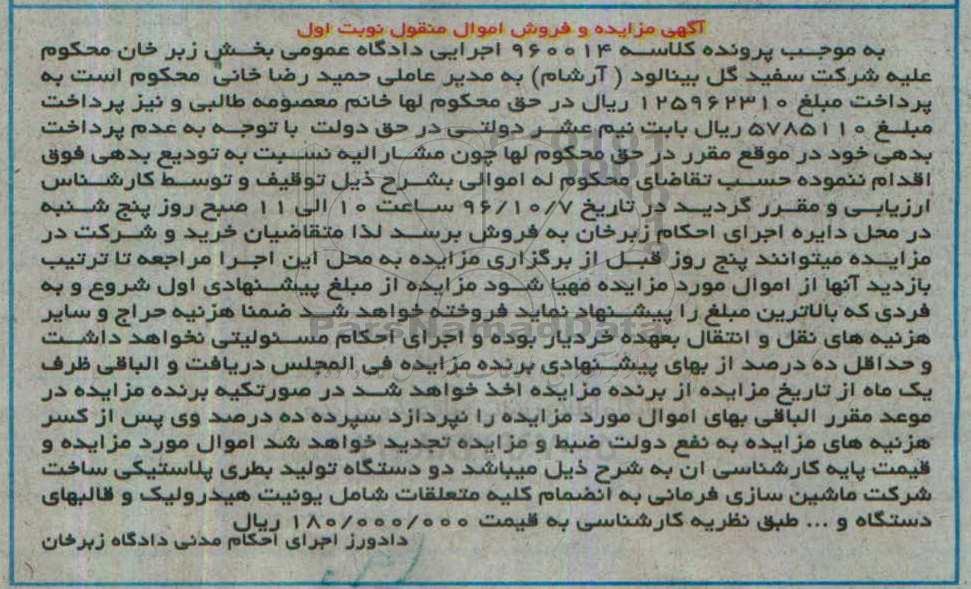 آگهی مزایده و فروش اموال منقول نوبت اول
به موجب پرونده کلاسه ۹۶۰۰۱۴ اجرایی دادگاه عمومی بخش زبر خان محکوم
علیه شرکت سفید گل بینالود ( آرشام) به مدیر عاملی حمید رضا خانی محکوم است به
پرداخت مبلغ ۱۲۵۹۶۲۳۱۰ ریال در حق محکوم لها خانم معصومه طالبی و نیز پرداخت
مبلغ ۵۷۸۵۱۱۰ ریال بابت نیم عشر دولتی در حق دولت با توجه به عدم پرداخت
بدهی خود در موقع مقرر در حق محکوم لها چون مشارالیه نسبت به تودیع بدهی فوق
اقدام ننموده حسب تقاضای محکوم له اموالی بشرح ذیل توقیف و توسط کارشناس
ارزیابی و مقرر گردید در تاریخ ۹۶/۱۰/۷ ساعت ۱۰ الی ۱۱ صبح روز پنج شنبه
در محل دایره اجرای احکام زبرخان به فروش برسد لذا متقاضیان خرید و شرکت در
مزایده میتوانند پنج روز قبل از برگزاری مزایده به محل این اجرا مراجعه تا ترتیب
بازدید آنها از اموال مورد مزایده مهیا شود مزایده از مبلغ پیشنهادی اول شروع و به
فردی که بالاترین مبلغ را پیشنهاد نماید فروخته خواهد شد ضمنا هزنیه حراج و سایر
هزنیه های نقل و انتقال بعهده خردیار بوده و اجرای احکام مسئولیتی نخواهد داشت
و حداقل ده درصد از بهای پیشنهادی برنده مزایده فی المجلس دریافت و الباقی ظرف
یک ماه از تاریخ مزایده از برنده مزایده اخذ خواهد شد در صورتکیه برنده مزایده در
موعد مقرر الباقی بهای اموال مورد مزایده را نپردازد سپرده ده درصد وی پس از کسر
هزنیه های مزایده به نفع دولت ضبط و مزایده تجدید خواهد شد اموال مورد مزایده و
قیمت پایه کارشناسی ان به شرح ذیل میباشد دو دستگاه تولید بطری پلاستیکی ساخت
شرکت ماشین سازی فرمانی به انضمام کلیه متعلقات شامل یونیت هیدرولیک و قالبهای
دستگاه و ... طبق نظریه کارشناسی به قیمت ۱۸۰/۰۰۰/۰۰۰ ریال
دادورز اجرای احکام مدنی دادگاه زبرخان
ParsNamadData